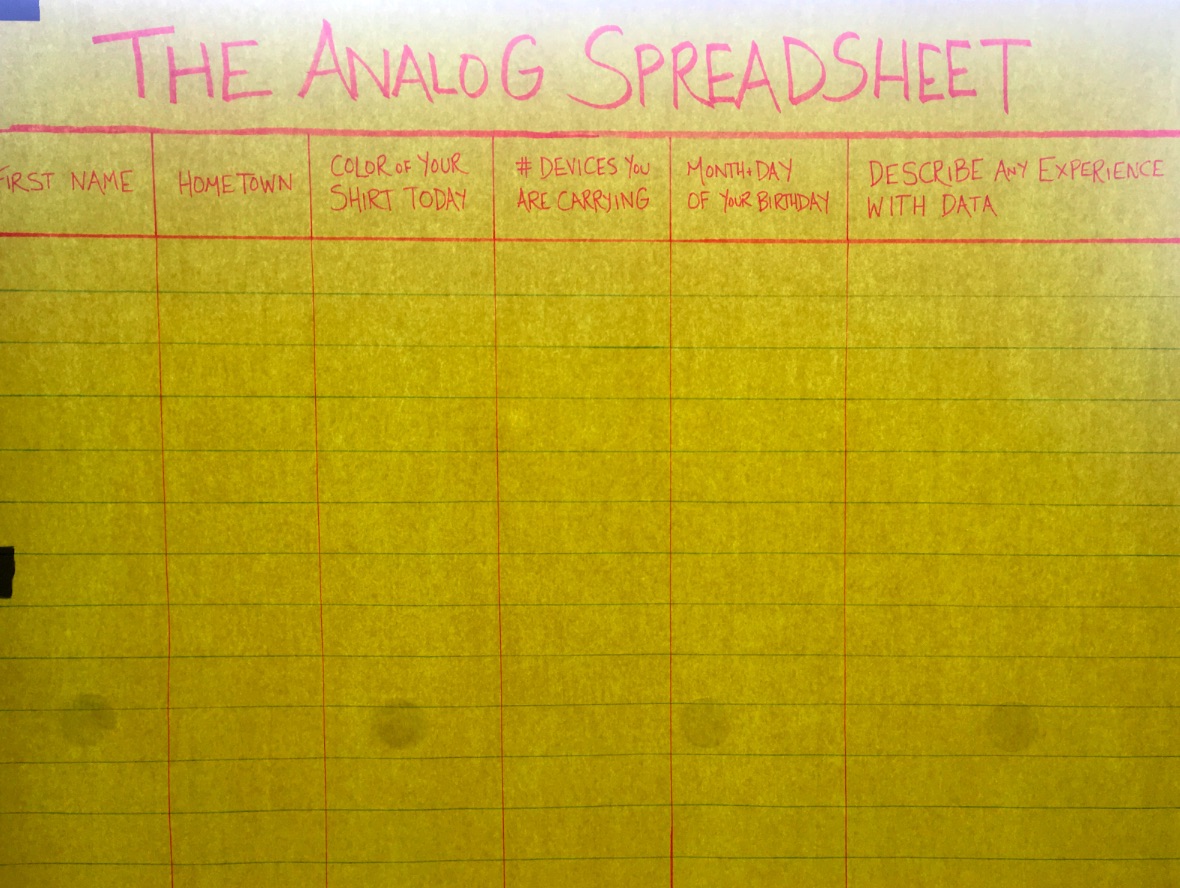 THE ANALOG SPREADSHEET
FIRST NAME
HOMETOWN
COLOR OF YOUR
SHIRT TODAY
# DEVICES YOU
ARE CARRYING
MONTH+DAY
OF YOUR BIRTHDAY
DESCRIBE ANY EXPERIENCE
WITH DATA